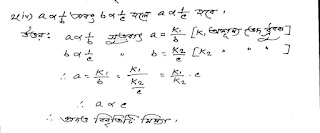 ২(iv) a∝1/b এবং b∝1/c হলে a∝1/c হবে।
উত্তরঃ a∝1/b সুতরাং a = K₁/b [K₁ অশূন্য ভেদ ধ্রুবক]
b∝1/c " b = K₂/c [K₂ " " "]
∴ a = K₁/b = K₁/(K₂/c) = K₁/K₂ · c
∴ a∝c
∴ প্রদত্ত বিবৃতিটি মিথ্যা।